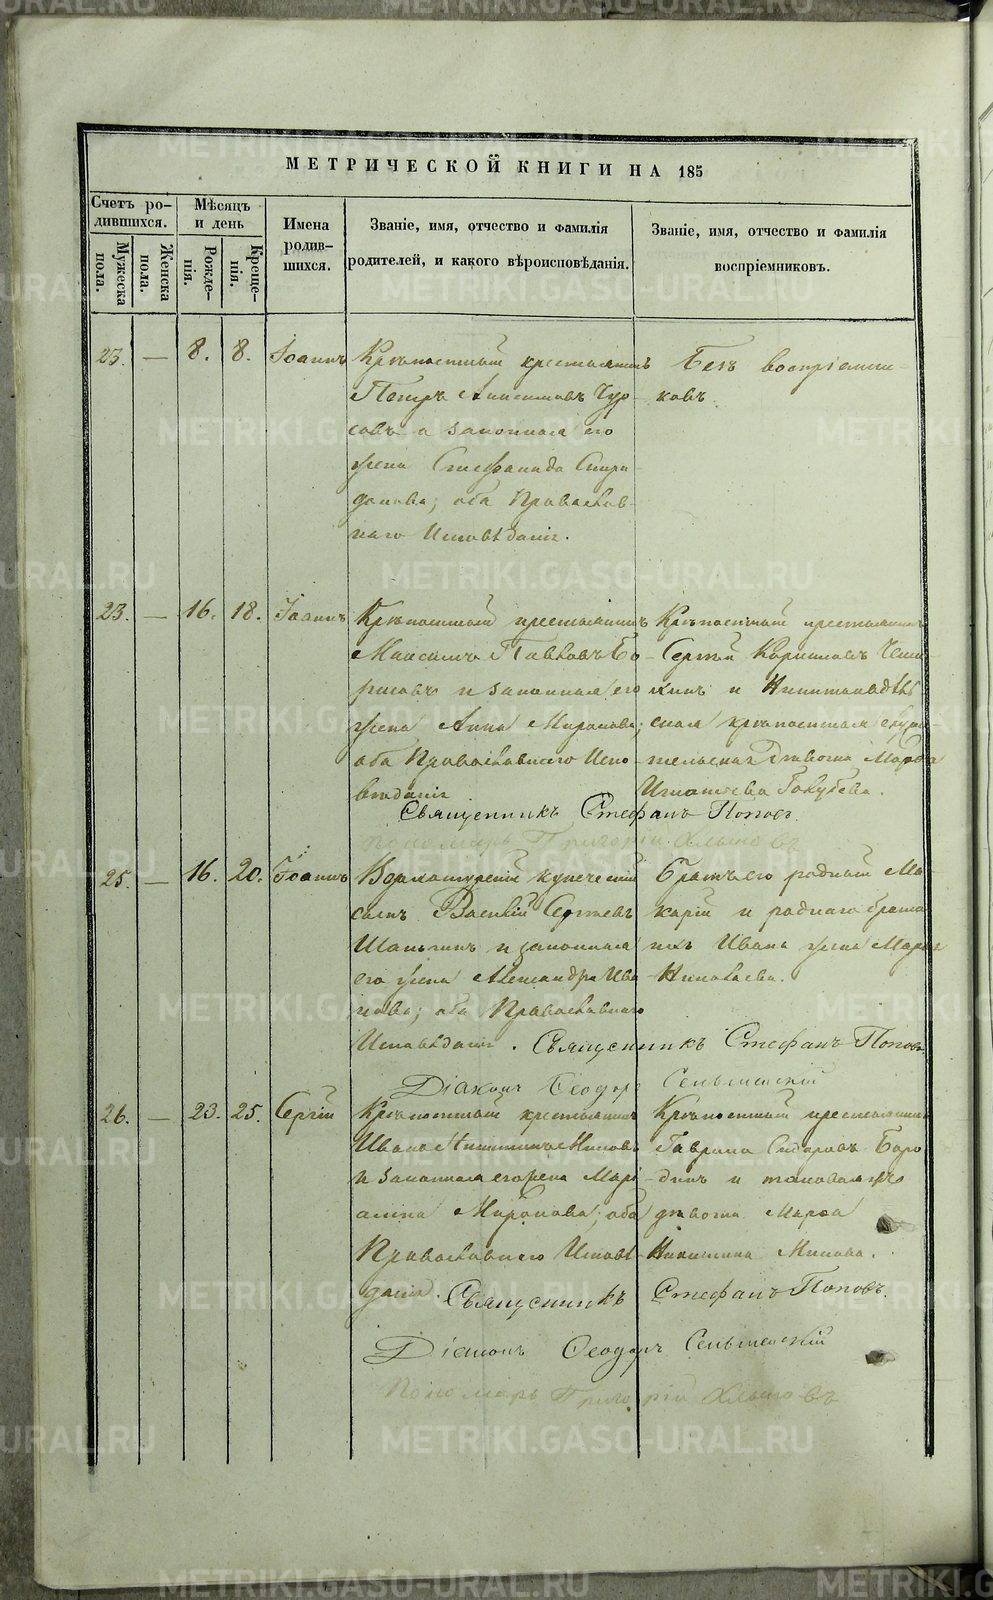 МЕТРИЧЕСКОЙ КНИГИ НА 185
Счетъ ро-
дившихся.
Мужеска пола.
Женска пола.
Мѣсяцъ и день
Рожде-нія.
Креще-нія.
Имена родив-шихся.
Званіе, имя, отчество и фамилія
родителей, и какого вѣроисповѣданія.
Званіе, имя, отчество и фамилія
воспріемниковъ.
23. — 8. 8. Іоаннъ
Крѣпостный крестьянинъ
Петръ Анисимовъ Чур-
совъ и законная его
жена Стефанида Спири-
донова; оба Православ-
наго Исповѣданія.
Безъ воспріемни-
ковъ.
23. — 16. 18. Іоаннъ
Крѣпостный крестьянинъ
Максимъ Павловъ Бо-
рисовъ и законная его
жена Анна Миронова;
оба Православнаго Испо-
вѣданія
Крѣпостный крестьянинъ
Сергѣй Корниловъ
и
крѣпостная
дѣвка Марѳа
Игнатьева Голубева.
Священникъ Стефанъ Поповъ.
Пономарь Григорій
25. — 16. 20. Іоаннъ
Верхотурскій купеческій
сынъ Василій Сергѣевъ
Шапыгинъ и законная
его жена Александра Ива-
нова; оба Православнаго
Исповѣданія.
Братъ его родный Ма-
карій и роднаго брата
ихъ Ивана жена Марья
Николаева.
Священникъ Стефанъ Поповъ
Діаконъ Ѳеодоръ
26. — 23. 25. Сергій
Крѣпостный крестьянинъ
Иванъ Никитинъ
и законная его жена Марі-
амна Миронова; оба
Православнаго Исповѣ-
данія.
Крѣпостный крестьянинъ
Гавріилъ Сидоровъ Боро-
динъ и таковая же
дѣвка Марѳа
Никитина
Священникъ Стефанъ Поповъ.
Діаконъ Ѳеодоръ
Пономарь Григорій
METRIKI.GASO-URAL.RU